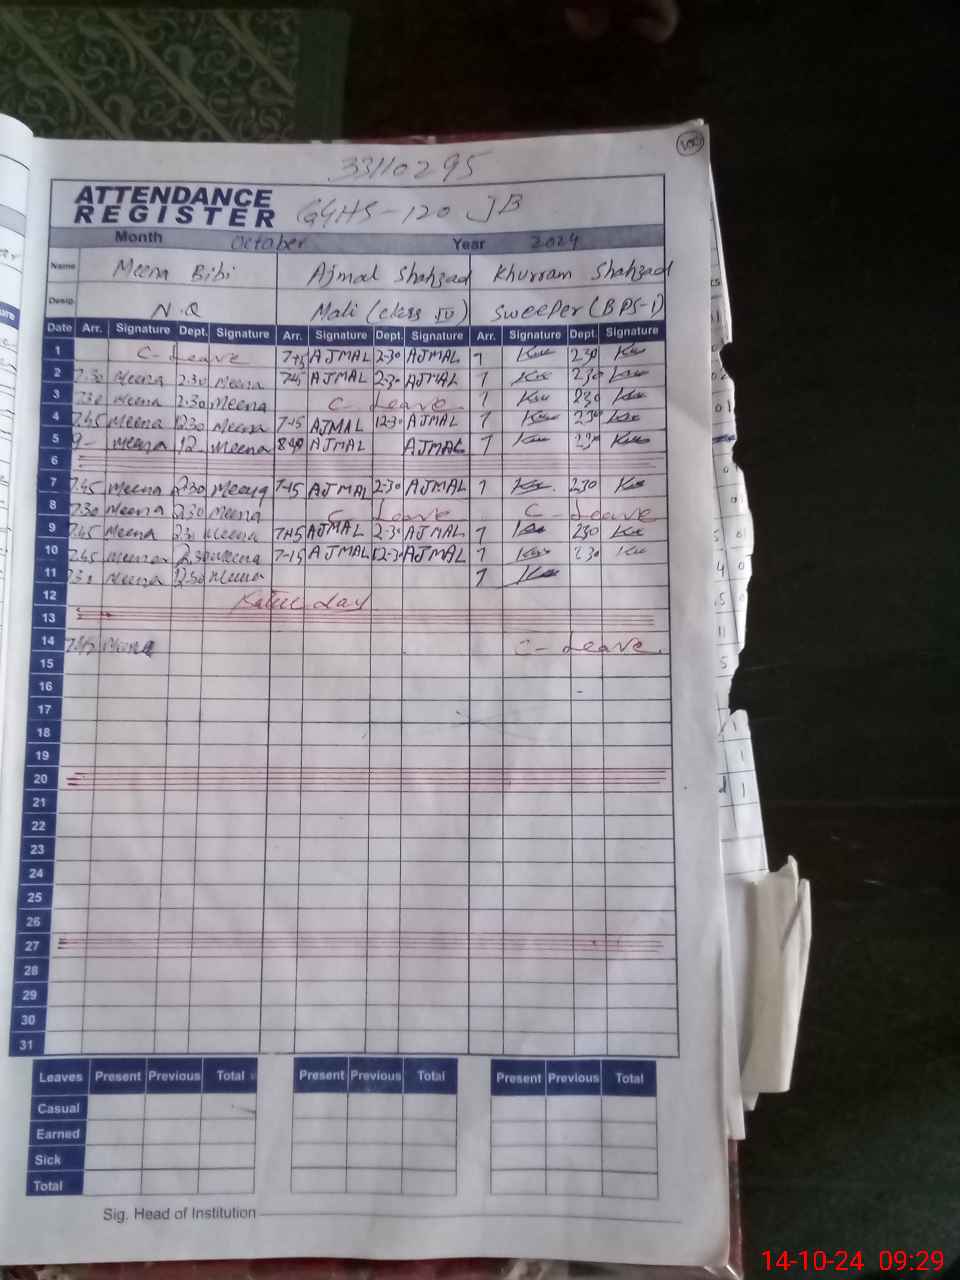 100
33110295
ATTENDANCE
REGISTER GGHS-120 JB
Month October Year 2024
Name Meena Bibi Ajmal Shahzad Khurram Shahzad
Desig. N.Q Mali (class IV) Sweeper (BPS-1)
Date Arr. Signature Dept. Signature Arr. Signature Dept. Signature Arr. Signature Dept. Signature
1 C-Leave 7-45 AJMAL 2-30 AJMAL 7 230
2 7.30 Meena 2.30 Meena 745 AJMAL 2-30 AJMAL 7 230
3 730 Meena 2.30 Meena C- Leave 7 230
4 7.45 Meena 1230 Meena 7-15 AJMAL 12-30 AJMAL 7 230
5 9- Meena 12- Meena AJMAL AJMAL 7 230
6
7 7.45 Meena 2.30 Meena 7-15 AJMAL 2-30 AJMAL 7 230
8 730 Meena 2.30 Meena C- Leave C- Leave
9 7.45 Meena 230 Meena 7-45 AJMAL 2-30 AJMAL 7 230
10 7.45 Meena 2.30 Meena 7-15 AJMAL 12-30 AJMAL 7 230
11 730 Meena 12.30 Meena 7
12 day
13
14 745 Meena C- Leave
15
16
17
18
19
20
21
22
23
24
25
26
27
28
29
30
31
Leaves Present Previous Total Present Previous Total Present Previous Total
Casual
Earned
Sick
Total
Sig. Head of Institution
14-10-24 09:29